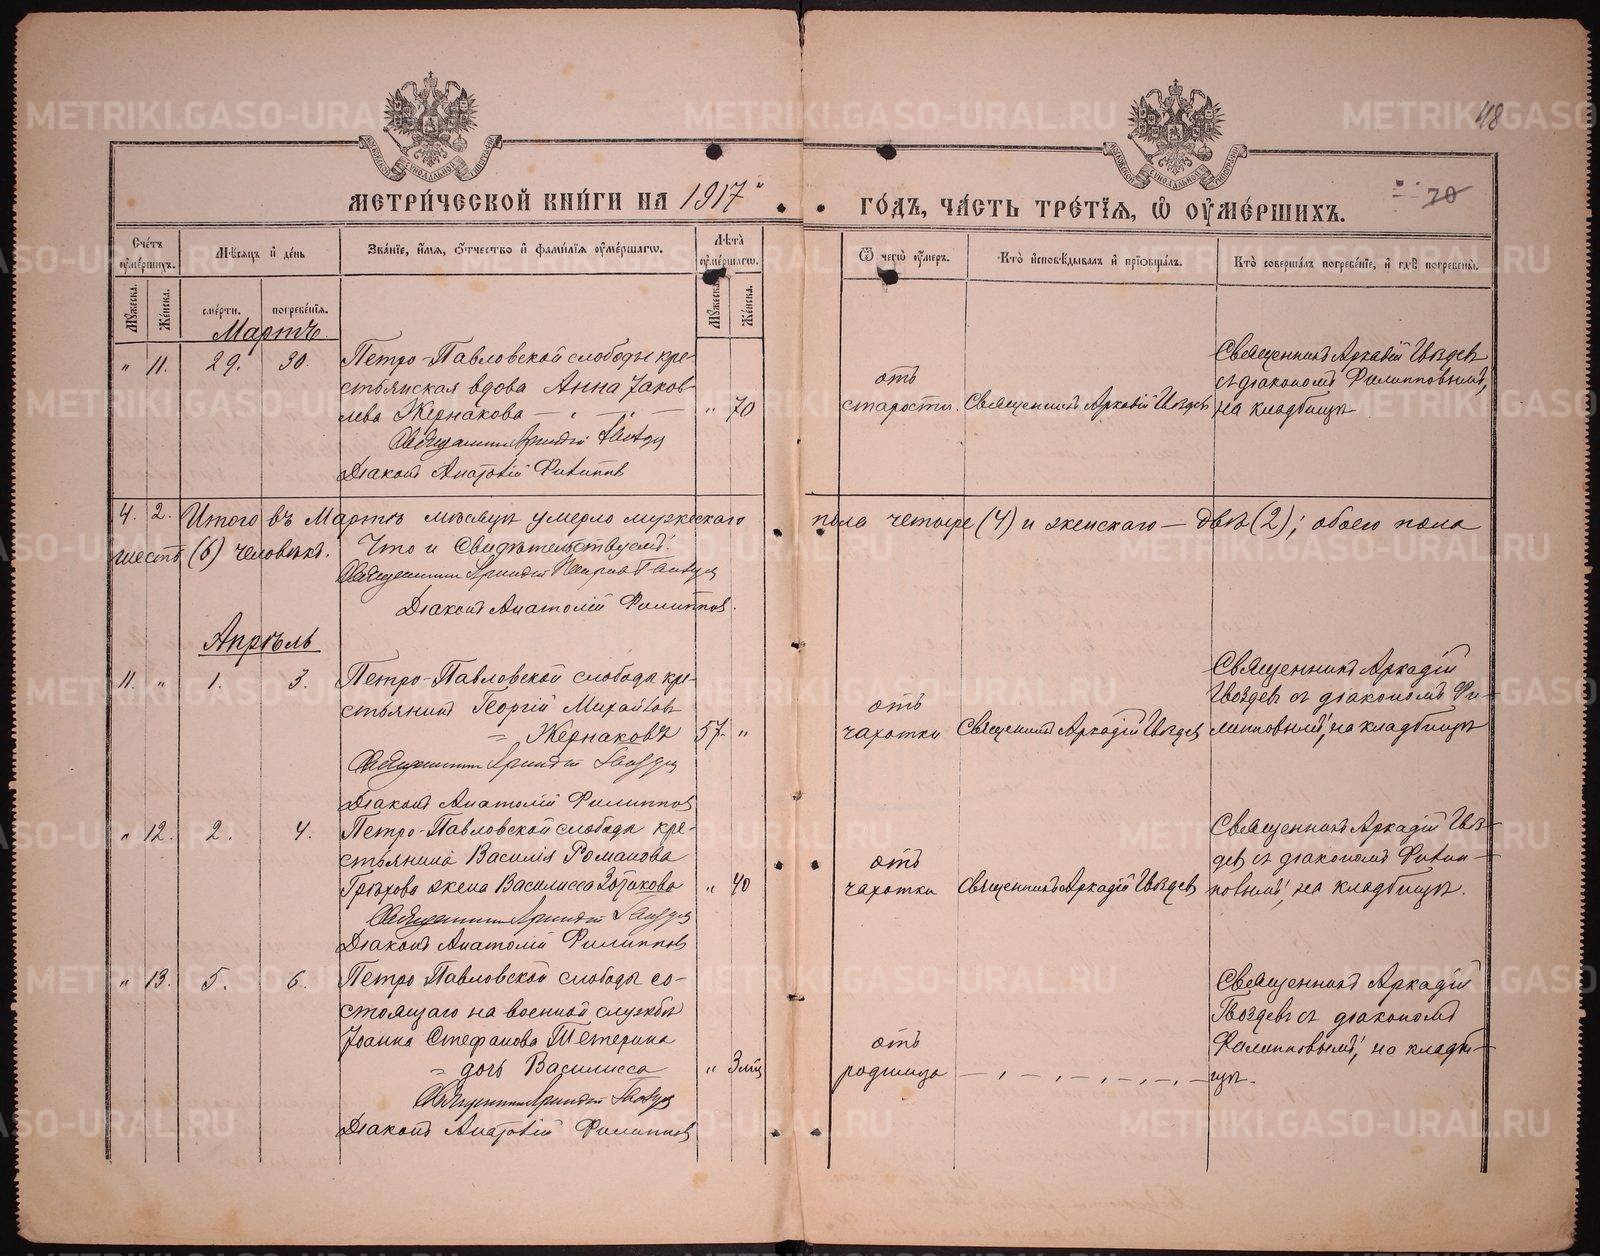 48
МЕТРИЧЕСКОЙ КНИГИ НА 1917 ГОДЪ, ЧАСТЬ ТРЕТІЯ, Ѡ ОУМЕРШИХЪ.
70
Счетъ оумершихъ.
Мѣсяцъ и день
Званіе, имя, отчество и фамилія оумершагѡ.
Лѣта оумершагѡ.
Ѿ чегѡ оумеръ.
Кто исповѣдывалъ и пріобщалъ.
Кто совершалъ погребеніе, и гдѣ погребены.
Мужеска.
Женска.
смерти.
погребенія.
Мужеска
Женска.
Мартъ.
" 11. 29. 30.
Петро-Павловской слободы кре-
стьянская вдова Анна Яков-
лева Жернакова
" 70
отъ
старости.
Священникъ Аркадій Гвоздевъ
Священникъ Аркадій Гвоздевъ
съ діакономъ Филипповымъ,
на кладбищѣ
Священникъ Аркадій Гвоздевъ
Діаконъ Анатолій Филипповъ
4. 2. Итого въ Мартѣ мѣсяцѣ умерло мужескаго пола четыре (4) и женскаго — двѣ (2); обоего пола
шесть (6) человѣкъ. Что и Свидѣтельствуемъ:
Священникъ Аркадій Гвоздевъ
Діаконъ Анатолій Филипповъ.
Апрѣль
11. " 1. 3.
Петро-Павловской слободы кре-
стьянинъ Георгій Михайловъ
Жернаковъ
57. "
отъ
чахотки
Священникъ Аркадій Гвоздевъ
Священникъ Аркадій
Гвоздевъ съ діакономъ Фи-
липповымъ, на кладбищѣ
Священникъ Аркадій Гвоздевъ
Діаконъ Анатолій Филипповъ
" 12. 2. 4.
Петро-Павловской слободы кре-
стьянина Василія Романова
Грѣхова жена Василисса Зотикова
" 40
отъ
чахотки
Священникъ Аркадій Гвоздевъ
Священникъ Аркадій Гвоз-
девъ съ діакономъ Филип-
повымъ, на кладбищѣ.
Священникъ Аркадій Гвоздевъ
Діаконъ Анатолій Филипповъ
" 13. 5. 6.
Петро-Павловской слободы со-
стоящаго на военной службѣ
Іоанна Стефанова Тетерина
дочь Василисса
" 3 мѣц
отъ
родимца
Священникъ Аркадій
Гвоздевъ съ діакономъ
Филипповымъ, на кладби-
щѣ.
Священникъ Аркадій Гвоздевъ
Діаконъ Анатолій Филипповъ
METRIKI.GASO-URAL.RU